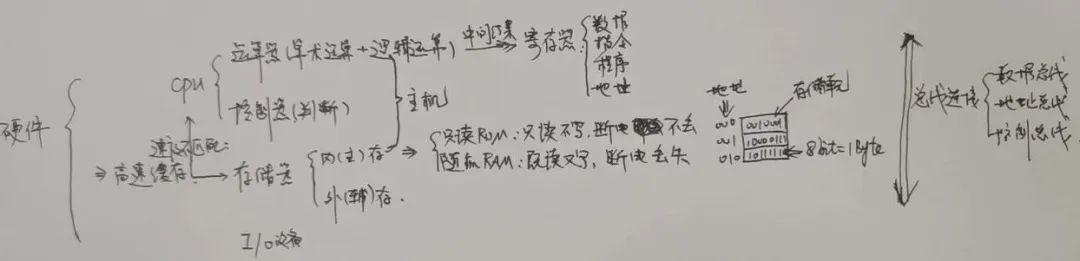 硬件
cpu
运算器(算术运算+逻辑运算)
中间结果
寄存器
数据
指令
程序
地址
控制器(判断)
主机
速度不匹配
⇒高速缓存
存储器
内(主)存
外(辅)存.
⇒
只读ROM:只读不写,断电不丢
随机RAM:既读又写,断电丢失
地址
000
001
010
存储单元
001001
1000011
101111
8bit=1Byte
I/O设备
总线连接
数据总线
地址总线
控制总线